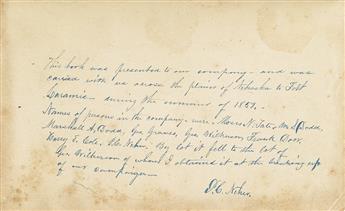 This book was presented to our company - and was
carried with us across the plains of Nebraska to Fort
Laramie - during the summer of 1857.
Names of persons in the company - were: Moses N. Tate, Wm. S. Dodd,
Marshall A. Dodd, Geo Graves, Geo Wilkerson, Frank Door,
Harry E. Cole, S.C. Neher. By lot it fell to the lot of
Geo. Wilkerson of whom I obtained it at the breaking up
of our company -
S.C. Neher.